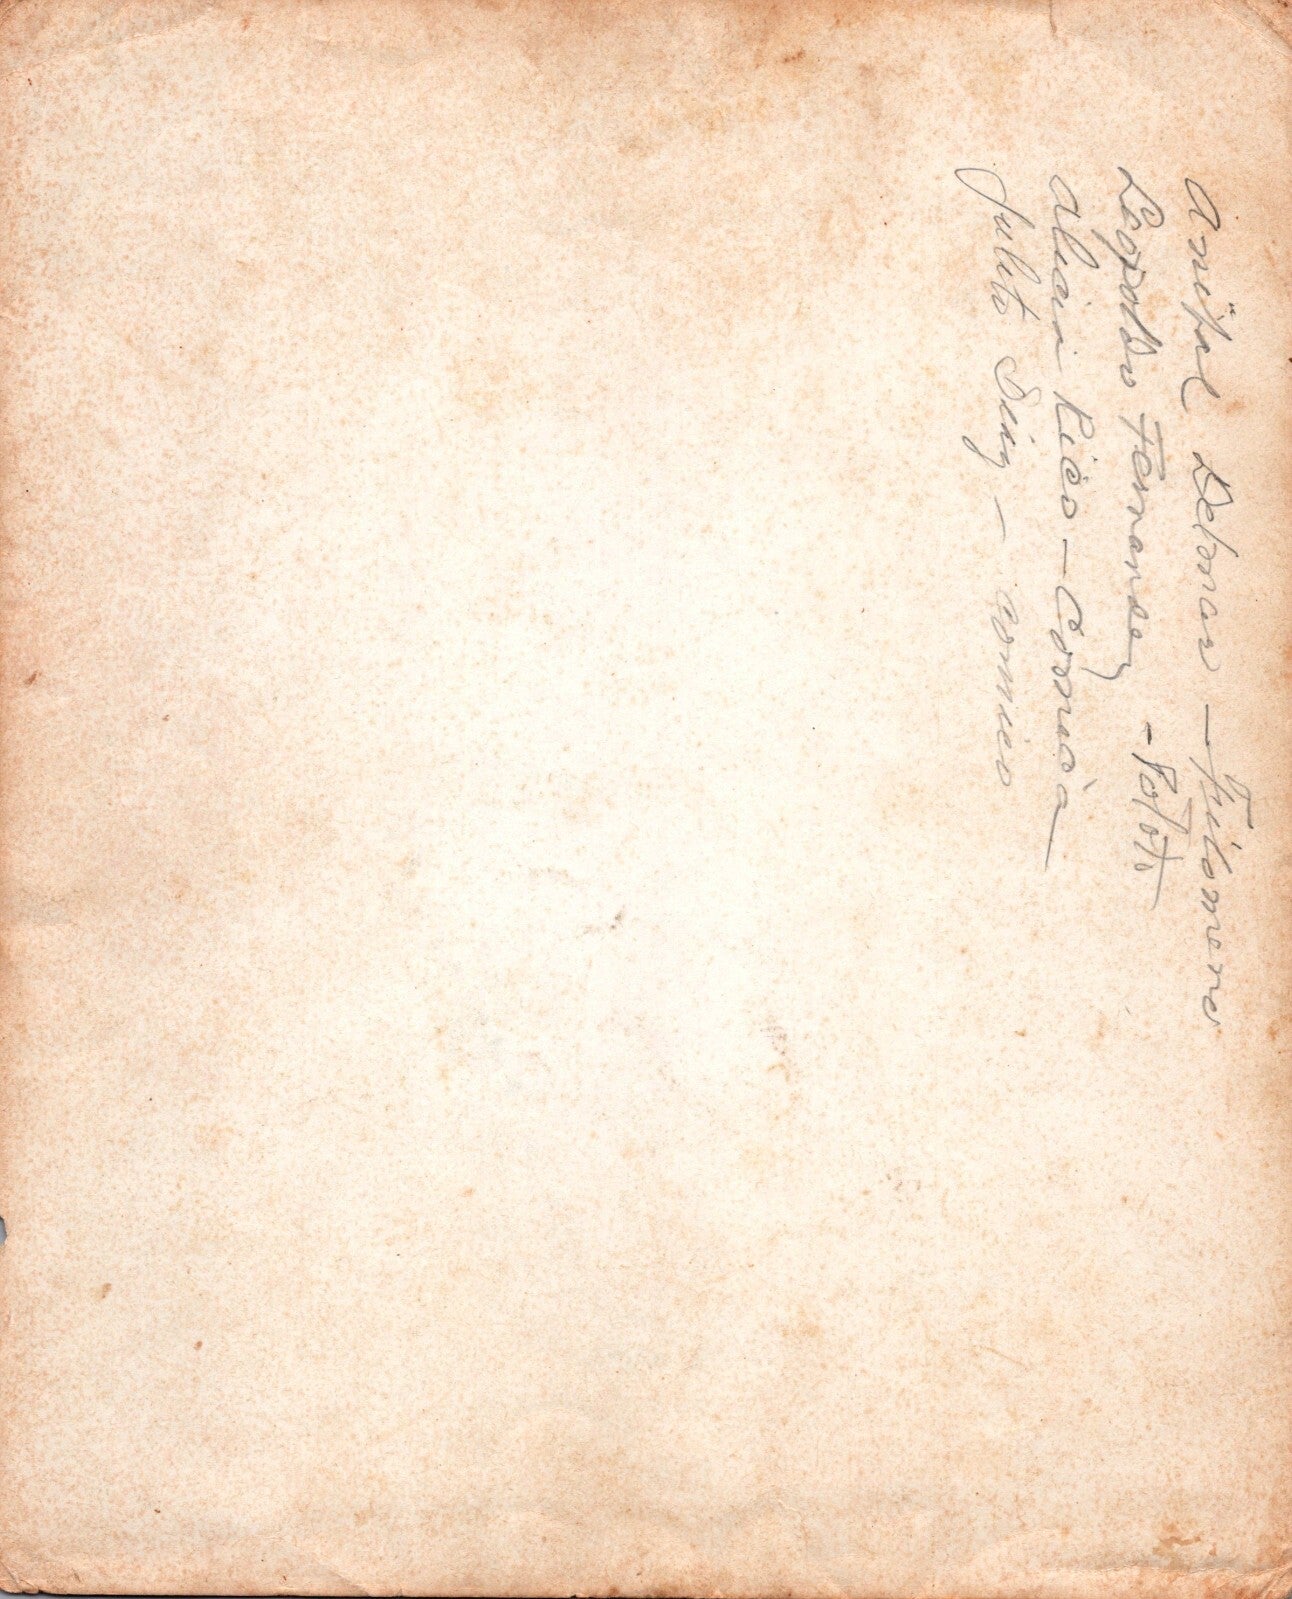 Anibal Delmar — Filomeno
Leopoldo Fernandez — Pototo
Alicia Rico — Comica
Julito Diaz — comico